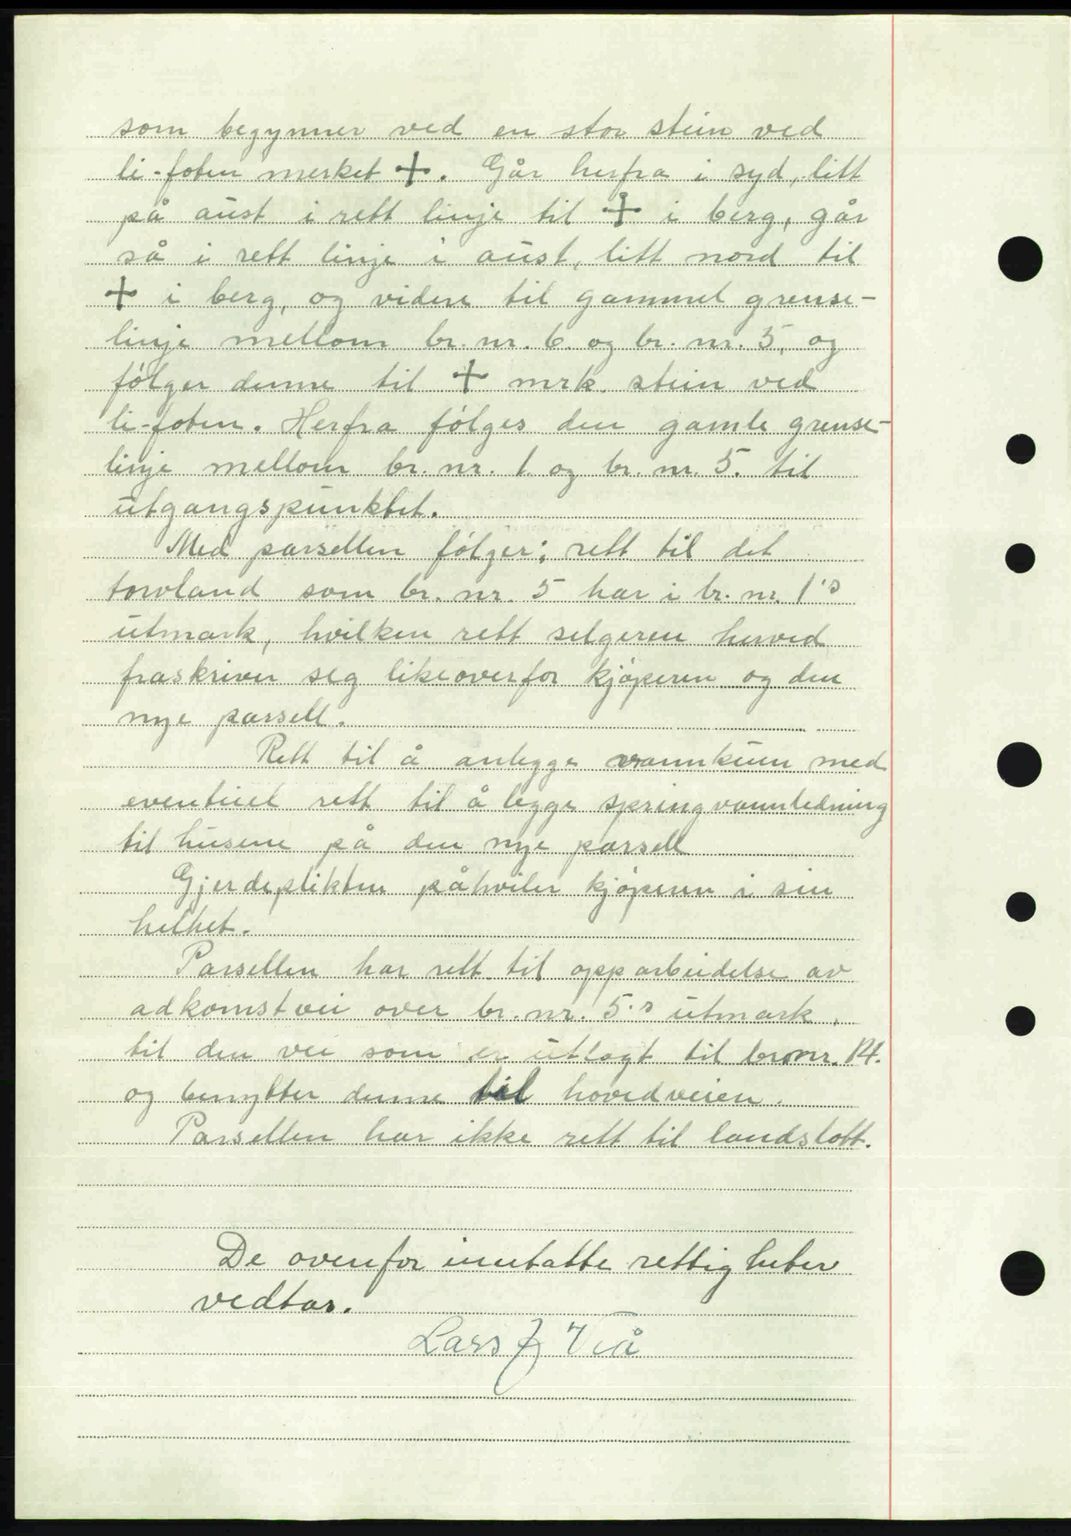 som begynner ved en stor stein ved
li-foten merket +. Går herfra i syd, litt
på aust i rett linje til + i berg, går
så i rett linje i aust, litt nord til
+ i berg, og videre til gammel grense-
linje mellom br. nr. 6. og br. nr. 5, og
følger denne til + mrk. stein ved
li-foten. Herfra følges den gamle grense-
linje mellom br. nr. 1 og br. nr. 5. til
utgangspunktet.
Med parsellen følger; rett til det
torvland som br. nr. 5 har i br. nr. 1's
utmark, hvilken rett selgeren herved
fraskriver seg likeoverfor kjøperen og den
nye parsell.
Rett til å anlegge vannkum med
eventuel rett til å legge springvannledning
til husene på den nye parsell
Gjerdeplikten påhviler kjøperen i sin
helhet.
Parsellen har rett til opparbeidelse av
adkomstvei over br. nr. 5's utmark,
til den vei som er utlagt til br. nr. 14.
og benytter denne til hovedveien.
Parsellen har ikke rett til landslott.
De ovenfor inntatte rettigheter
vedtas.
Lars J